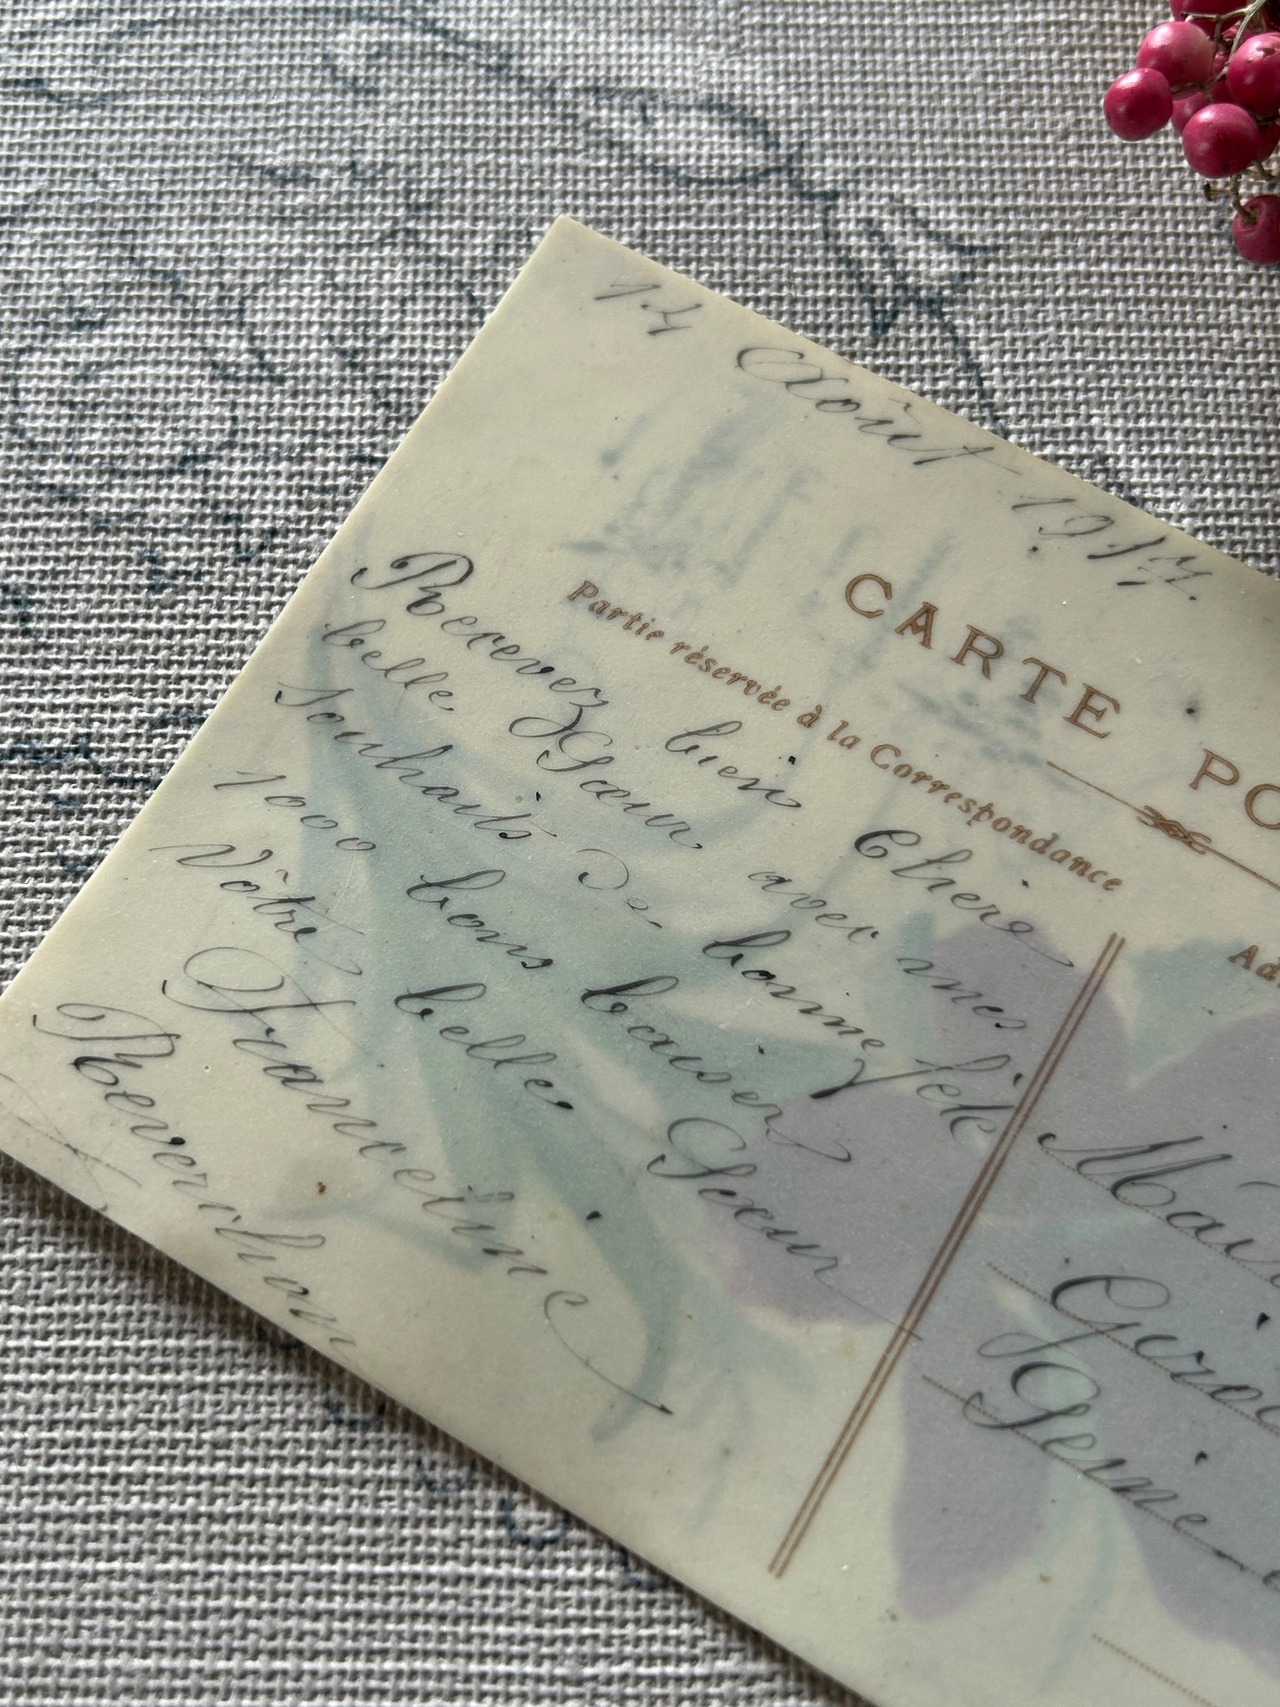 14 Août 1917.
CARTE PO
Partie réservée à la Correspondance
Recevez bien Chère
belle Sœur avec mes
souhaits de bonne fête
1000 bons baisers
Vôtre belle Sœur
Franceline
Reverchon
Ad
Mai
Seine